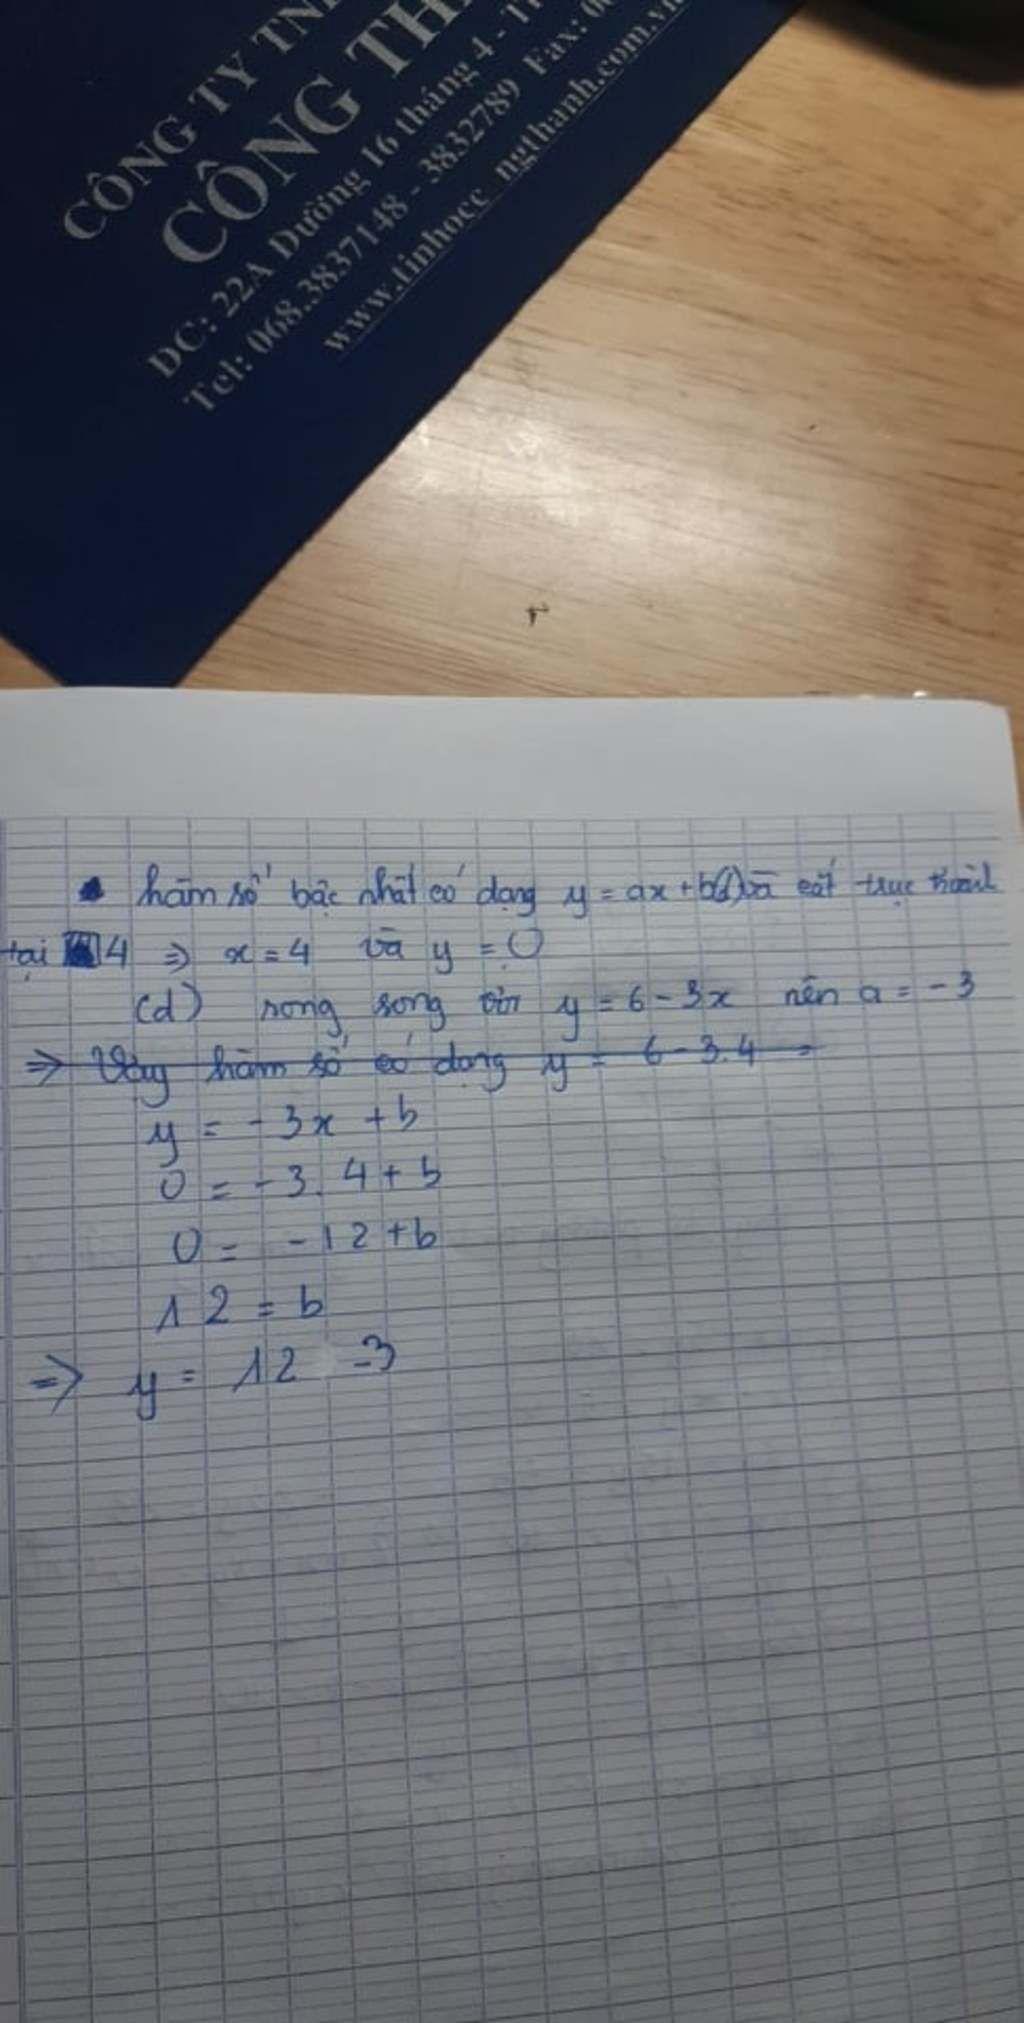 CÔNG TY TN
CÔNG TH
ĐC: 22A Đường 16 tháng 4 - T
Tel: 068.3837148 - 3832789 Fax: 0
www.tinhocc ngthanh.com.v
hàm số bậc nhất có dạng y = ax + b(d) và cắt trục hoành
tại 4 => x = 4 và y = 0
(d) song song với y = 6 - 3x nên a = -3
=> Vậy hàm số có dạng y = 6 - 3.4 =
y = -3x + b
0 = -3. 4 + b
0 = -12 + b
12 = b
=> y = 12 -3